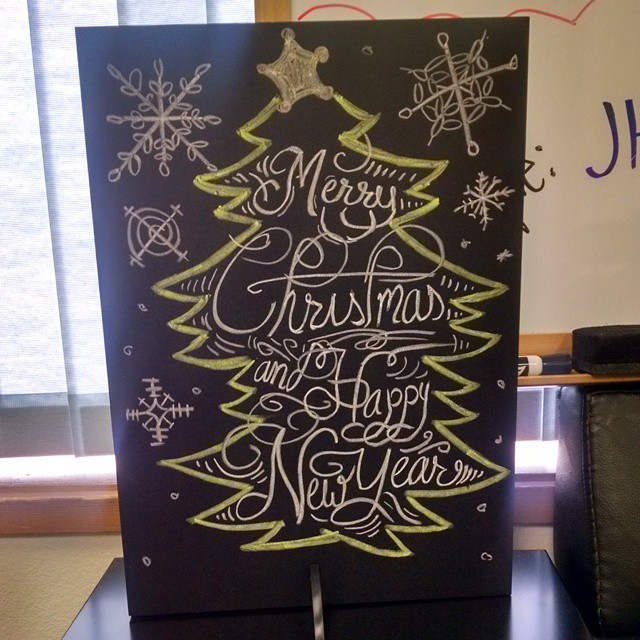 Merry
Christmas
and Happy
New Year
JH